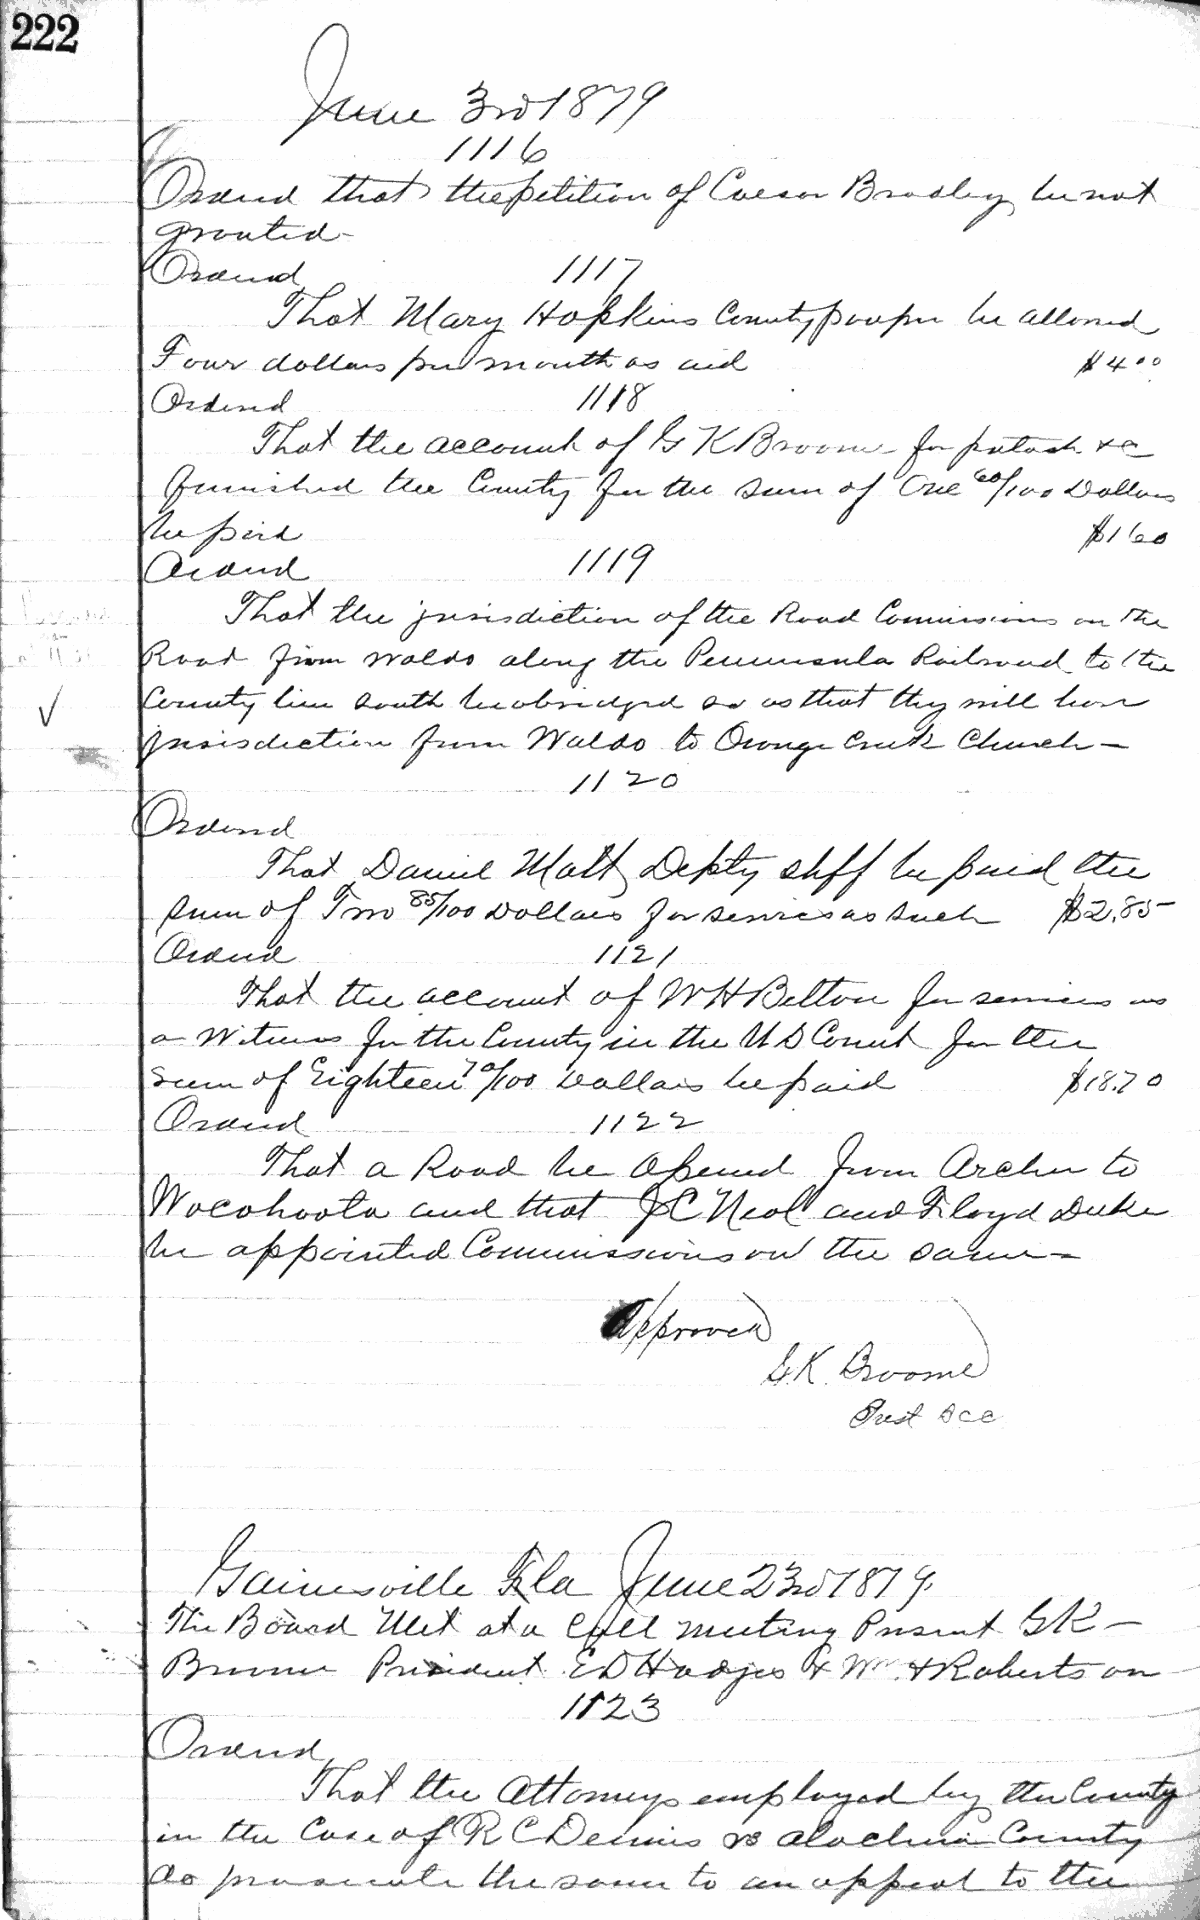 222
June 3rd 1879
1116
Ordered that the petition of Caesar Bradley be not
granted-
Ordered 1117
That Mary Hopkins County pauper be allowed
Four dollars per month as aid $4.00
Ordered 1118
That the account of G K Broome for potash &c
furnished the County for the sum of One 60/100 Dollars
be paid $1 60
Ordered 1119
That the jurisdiction of the Road Commissions on the
Road from Waldo along the Peninsula Railroad to the
County line South be abridged so as that they will have
jurisdiction from Waldo to Orange Creek Church-
1120
Ordered
That Daniel Mott Depty shff be paid the
sum of Two 85/100 Dollars for services as such $2.85
Ordered 1121
That the account of W H Belton for services as
a Witness for the County in the U S Court for the
sum of Eighteen 70/100 Dollars be paid $18.70
Ordered 1122
That a Road be opened from Archer to
Wacahoota and that J C Neal and Floyd Duke
be appointed Commissions on the same-
Approved
G.K. Broome
Prest BCC
Gainesville Fla June 23rd 1879.
The Board Met at a Call meeting Present G K -
Broome President E D Hodges & Wm H Robertson
1123
Ordered
That the Attorneys employed by the County
in the Case of R C Dennis vs Alachua County
do prosecute the same to an appeal to the